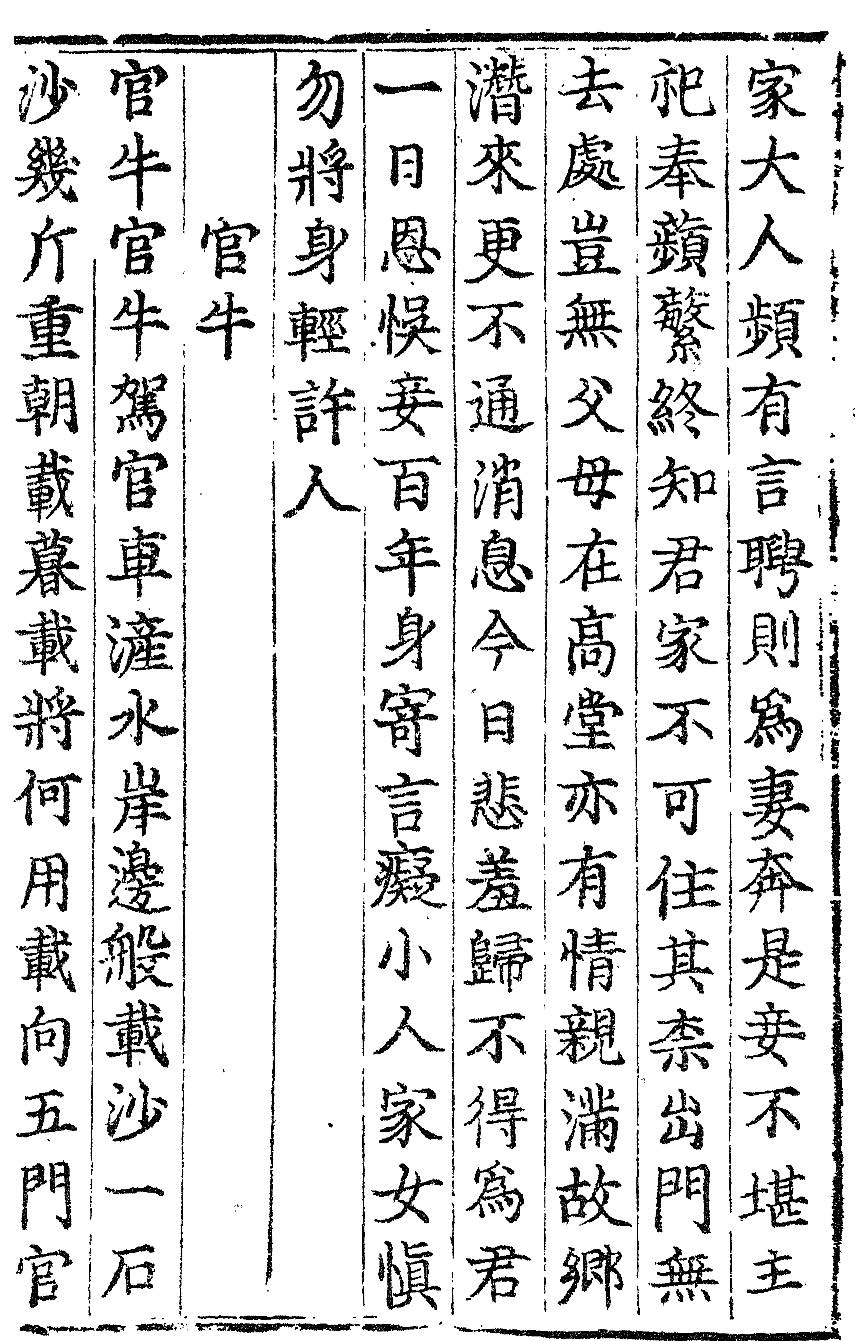 家大人頻有言聘則爲妻奔是妾不堪主
祀奉蘋蘩終知君家不可住其柰出門無
去處豈無父母在高堂亦有情親滿故鄉
潛來更不通消息今日悲羞歸不得爲君
一日恩悞妾百年身寄言癡小人家女愼
勿將身輕許人
官牛
官牛官牛駕官車滻水岸邊般載沙一石
沙幾斤重朝載暮載將何用載向五門官